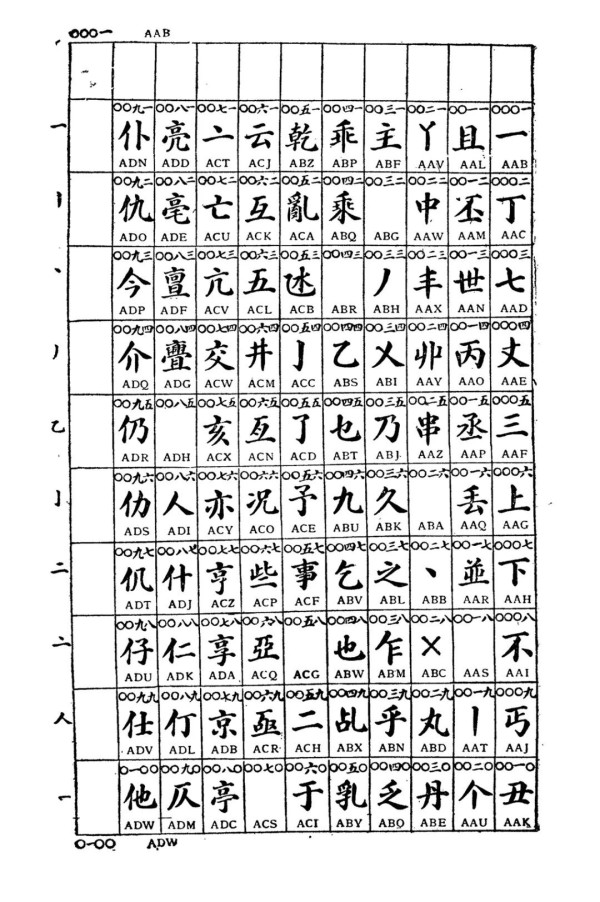 〇〇〇一 AAB
〇〇九一 〇〇八一 〇〇七一 〇〇六一 〇〇五一 〇〇四一 〇〇三一 〇〇二一 〇〇一一 〇〇〇一
一 仆 亮 亠 云 乾 乖 主 丫 且 一
ADN ADD ACT ACJ ABZ ABP ABF AAV AAL AAB
〇〇九二 〇〇八二 〇〇七二 〇〇六二 〇〇五二 〇〇四二 〇〇三二 〇〇二二 〇〇一二 〇〇〇二
丨 仇 亳 亡 互 亂 乘 中 丕 丁
ADO ADE ACU ACK ACA ABQ ABG AAW AAM AAC
〇〇九三 〇〇八三 〇〇七三 〇〇六三 〇〇五三 〇〇四三 〇〇三三 〇〇二三 〇〇一三 〇〇〇三
丶 今 亶 亢 五 丿 丰 世 七
ADP ADF ACV ACL ACB ABR ABH AAX AAN AAD
〇〇九四 〇〇八四 〇〇七四 〇〇六四 〇〇五四 〇〇四四 〇〇三四 〇〇二四 〇〇一四 〇〇〇四
丿 介 亹 交 井 亅 乙 乂 丱 丙 丈
ADQ ADG ACW ACM ACC ABS ABI AAY AAO AAE
〇〇九五 〇〇八五 〇〇七五 〇〇六五 〇〇五五 〇〇四五 〇〇三五 〇〇二五 〇〇一五 〇〇〇五
乙 仍 亥 亙 了 乜 乃 串 丞 三
ADR ADH ACX ACN ACD ABT ABJ AAZ AAP AAF
〇〇九六 〇〇八六 〇〇七六 〇〇六六 〇〇五六 〇〇四六 〇〇三六 〇〇二六 〇〇一六 〇〇〇六
亅 仂 人 亦 况 予 九 久 丟 上
ADS ADI ACY ACO ACE ABU ABK ABA AAQ AAG
〇〇九七 〇〇八七 〇〇七七 〇〇六七 〇〇五七 〇〇四七 〇〇三七 〇〇二七 〇〇一七 〇〇〇七
二 仉 什 亨 些 事 乞 之 丶 並 下
ADT ADJ ACZ ACP ACF ABV ABL ABB AAR AAH
〇〇九八 〇〇八八 〇〇七八 〇〇六八 〇〇五八 〇〇四八 〇〇三八 〇〇二八 〇〇一八 〇〇〇八
亠 仔 仁 享 亞 也 乍 × 不
ADU ADK ADA ACQ ACG ABW ABM ABC AAS AAI
〇〇九九 〇〇八九 〇〇七九 〇〇六九 〇〇五九 〇〇四九 〇〇三九 〇〇二九 〇〇一九 〇〇〇九
人 仕 仃 京 亟 二 乩 乎 丸 丨 丐
ADV ADL ADB ACR ACH ABX ABN ABD AAT AAJ
〇一〇〇 〇〇九〇 〇〇八〇 〇〇七〇 〇〇六〇 〇〇五〇 〇〇四〇 〇〇三〇 〇〇二〇 〇〇一〇
一 他 仄 亭 于 乳 乏 丹 个 丑
ADW ADM ADC ACS ACI ABY ABO ABE AAU AAK
〇一〇〇 ADW